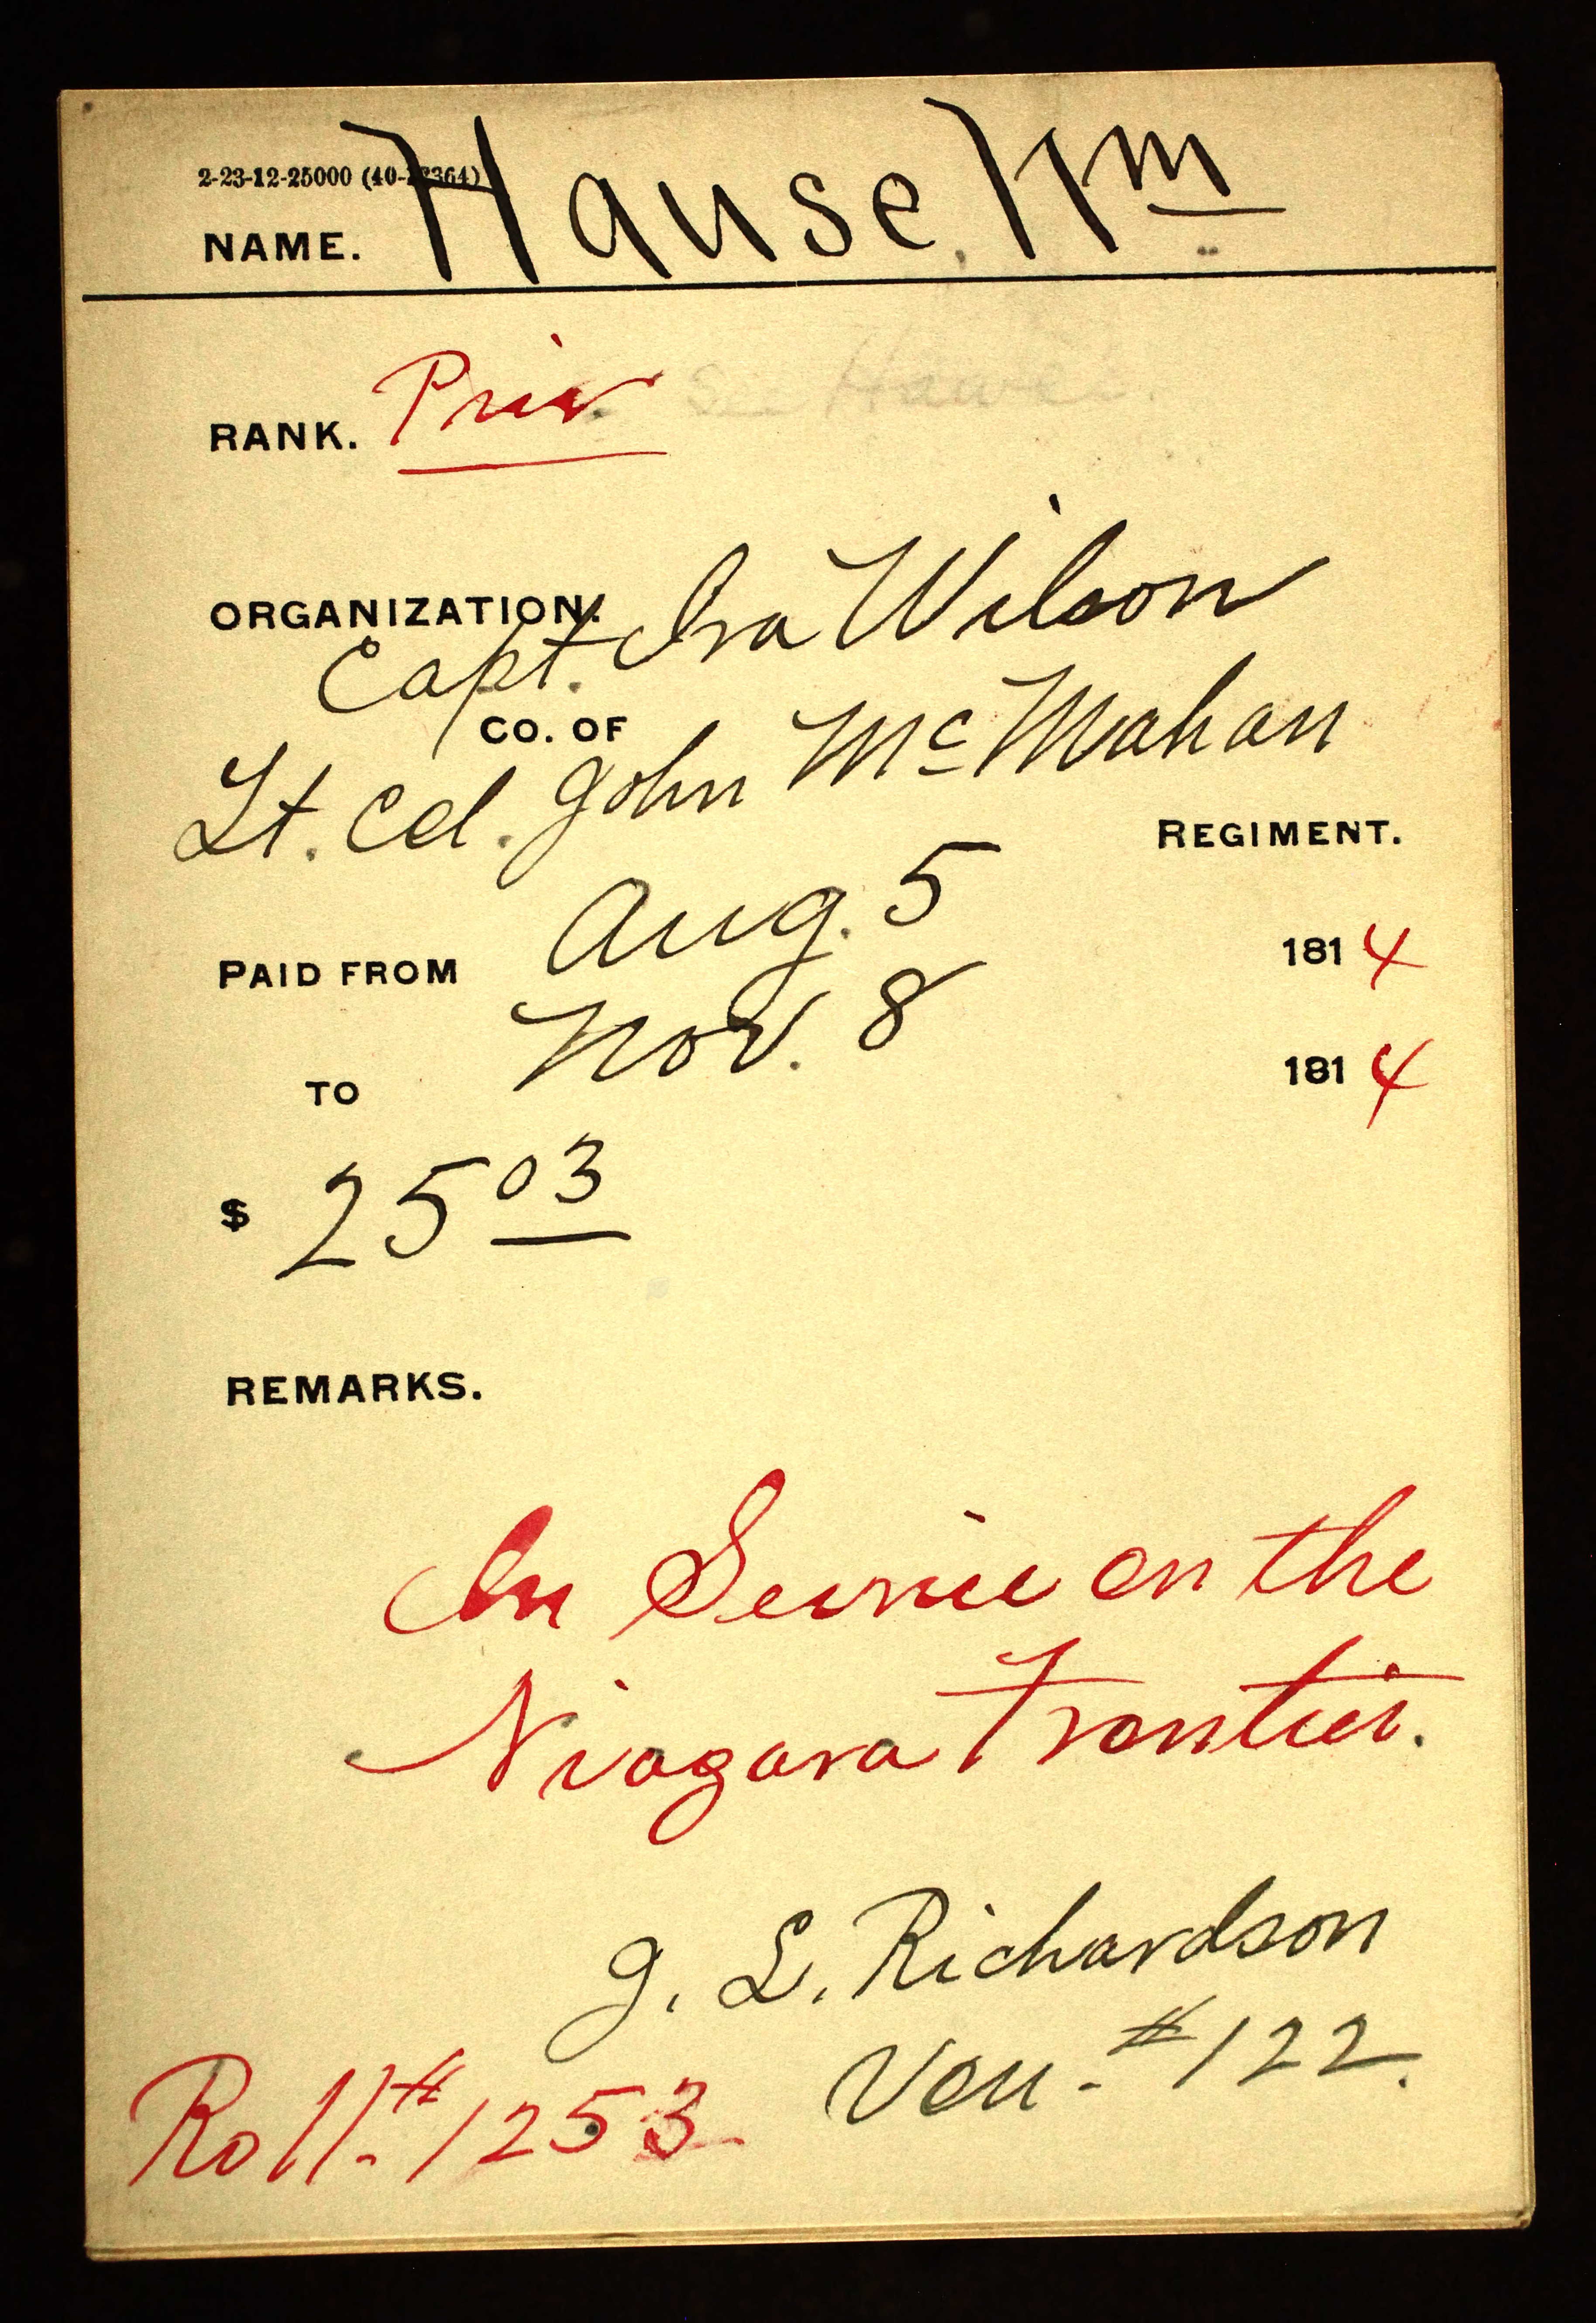 2-23-12-25000 (40-
NAME. Hause, Wm
RANK. Priv See
ORGANIZATION.
Capt. Ira Wilson
CO. OF
Lt. Col. John McMahan
REGIMENT.
PAID FROM Aug. 5 1814
TO Nov. 8 1814
$ 25 03
REMARKS.
In Service on the
Niagara Frontier.
J. L. Richardson
Vou. # 122.
Roll. # 1253